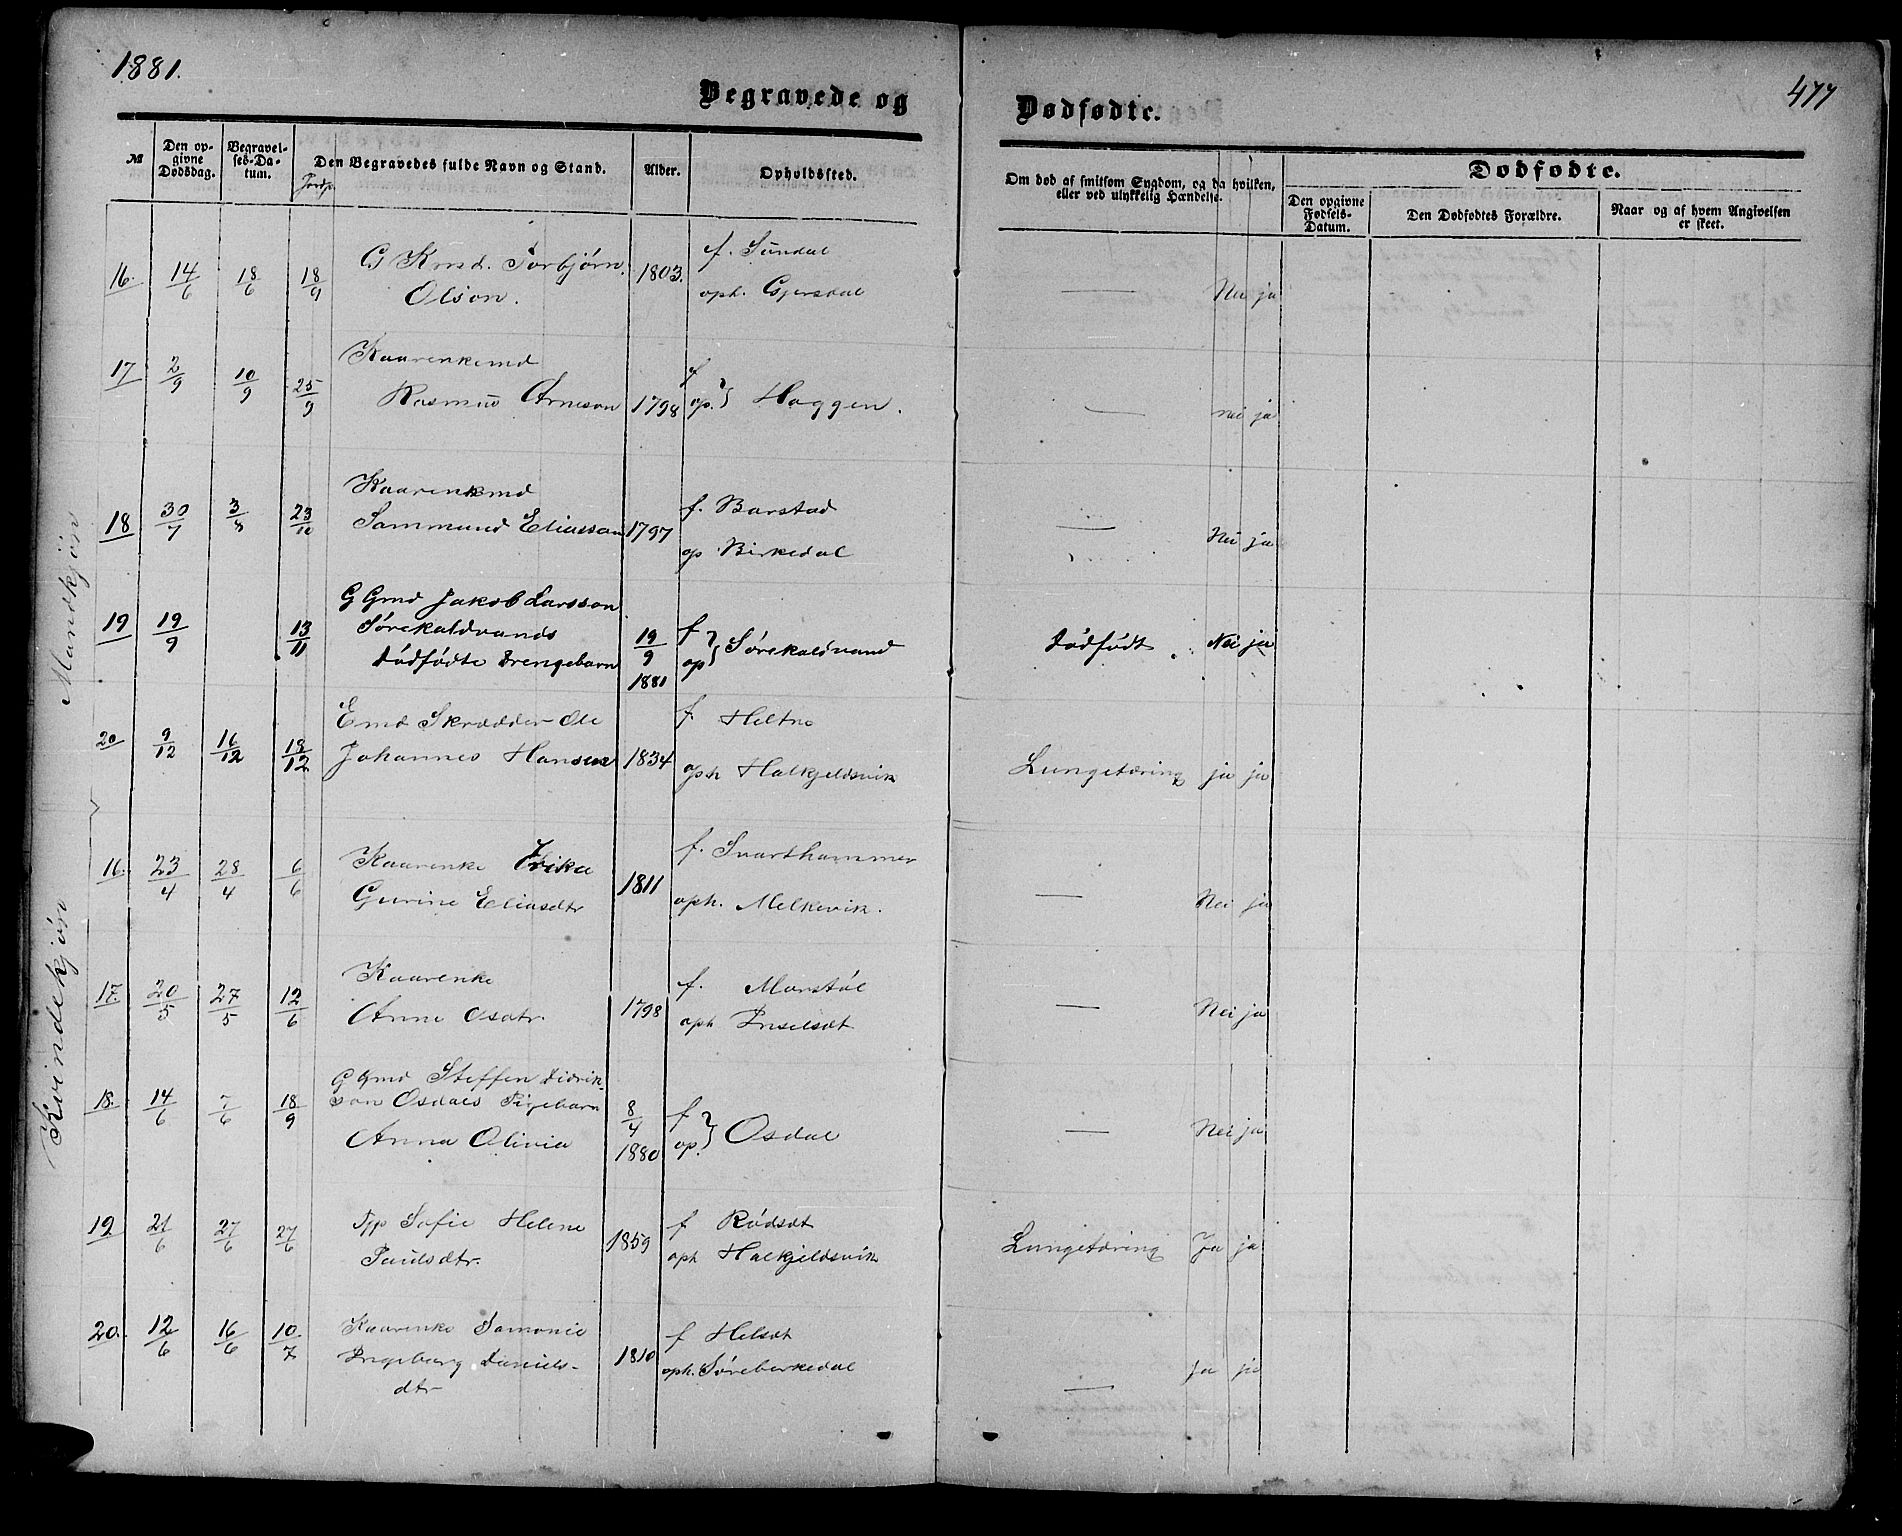 1881.
477
Begravede og
Dødfødte.
№
Den opgivne Dødsdag.
Begravelses-Datum.
Jordp.
Den Begravedes fulde Navn og Stand.
Alder.
Opholdssted.
Om død af smitsom Sygdom, og da hvilken, eller ved ulykkelig Hændelse.
Dødfødte.
Den opgivne Fødsels-Datum.
Den Dødfødtes Forældre.
Naar og af hvem Angivelsen er skeet.
Mandkjøn
16. 14/6 18/6 18/9 G Kmd. Torbjørn 1803. f. Sundal
Olson. oph. Gjersdal — Nei ja
17 2/9 10/9 25/9 Kaarenkemd
Rasmus Arneson 1798 f op.} Haggen. — nei ja
18 30/7 3/8 23/10 Kaarenkemd
Sammund Eliasson 1797 f. Barstad
op Birkedal — Nei ja
19 19/9 13/11 G Gmd Jakob Larsson
Sørekaldvands
dødfødte Drengebarn 19/9 1881 f op} Sørekaldvand Dødfødt Nei ja
20 9/12 16/12 18/12 Emd Skrædder Ole f. Heltne
Johannes Hansen 1834 oph Halkjeldsvik Lungetæring ja ja
Kvindekjøn
16. 23/4 28/4 6/6 Kaarenke f. Svarthammer
Gurine Eliasdtr 1811 oph. Melkevik. — Nei ja
17. 20/5 27/5 12/6 Kaarenke f. Marstøl
Anne Osdtr. 1798 oph — Nei ja
18. 14/6 7/6 18/9 G Gmd Steffen Didrik-
son Osdals Pigebarn
Anna Olivia 8/4 1880 f op.} Osdal — Nei ja
19 21/6 27/6 27/6 Sofie Helene f Rødsdt
Paulsdtr. 1859 oph Halkjeldsvik Lungetæring Ja ja
20. 12/6 16/6 10/7 Kaarenke Samonie f Helsdt
Ingeborg Daniels- 1810 oph. Søreberkedal
dtr — Ja ja